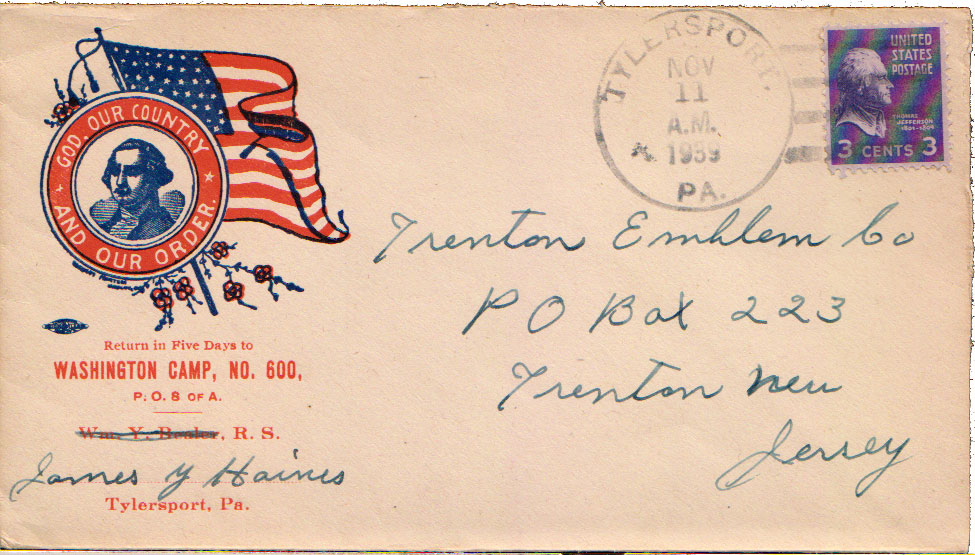 GOD, OUR COUNTRY
AND OUR ORDER.
Return in Five Days to
WASHINGTON CAMP, NO. 600,
P. O. S OF A.
Wm. Y. Bealer, R. S.
James Y Haines
Tylersport, Pa.
TYLERSPORT,
NOV
11
A.M.
1939
PA.
UNITED
STATES
POSTAGE
THOMAS
JEFFERSON
1801-1809
3 CENTS 3
Trenton Emblem Co
P O Box 223
Trenton New
Jersey